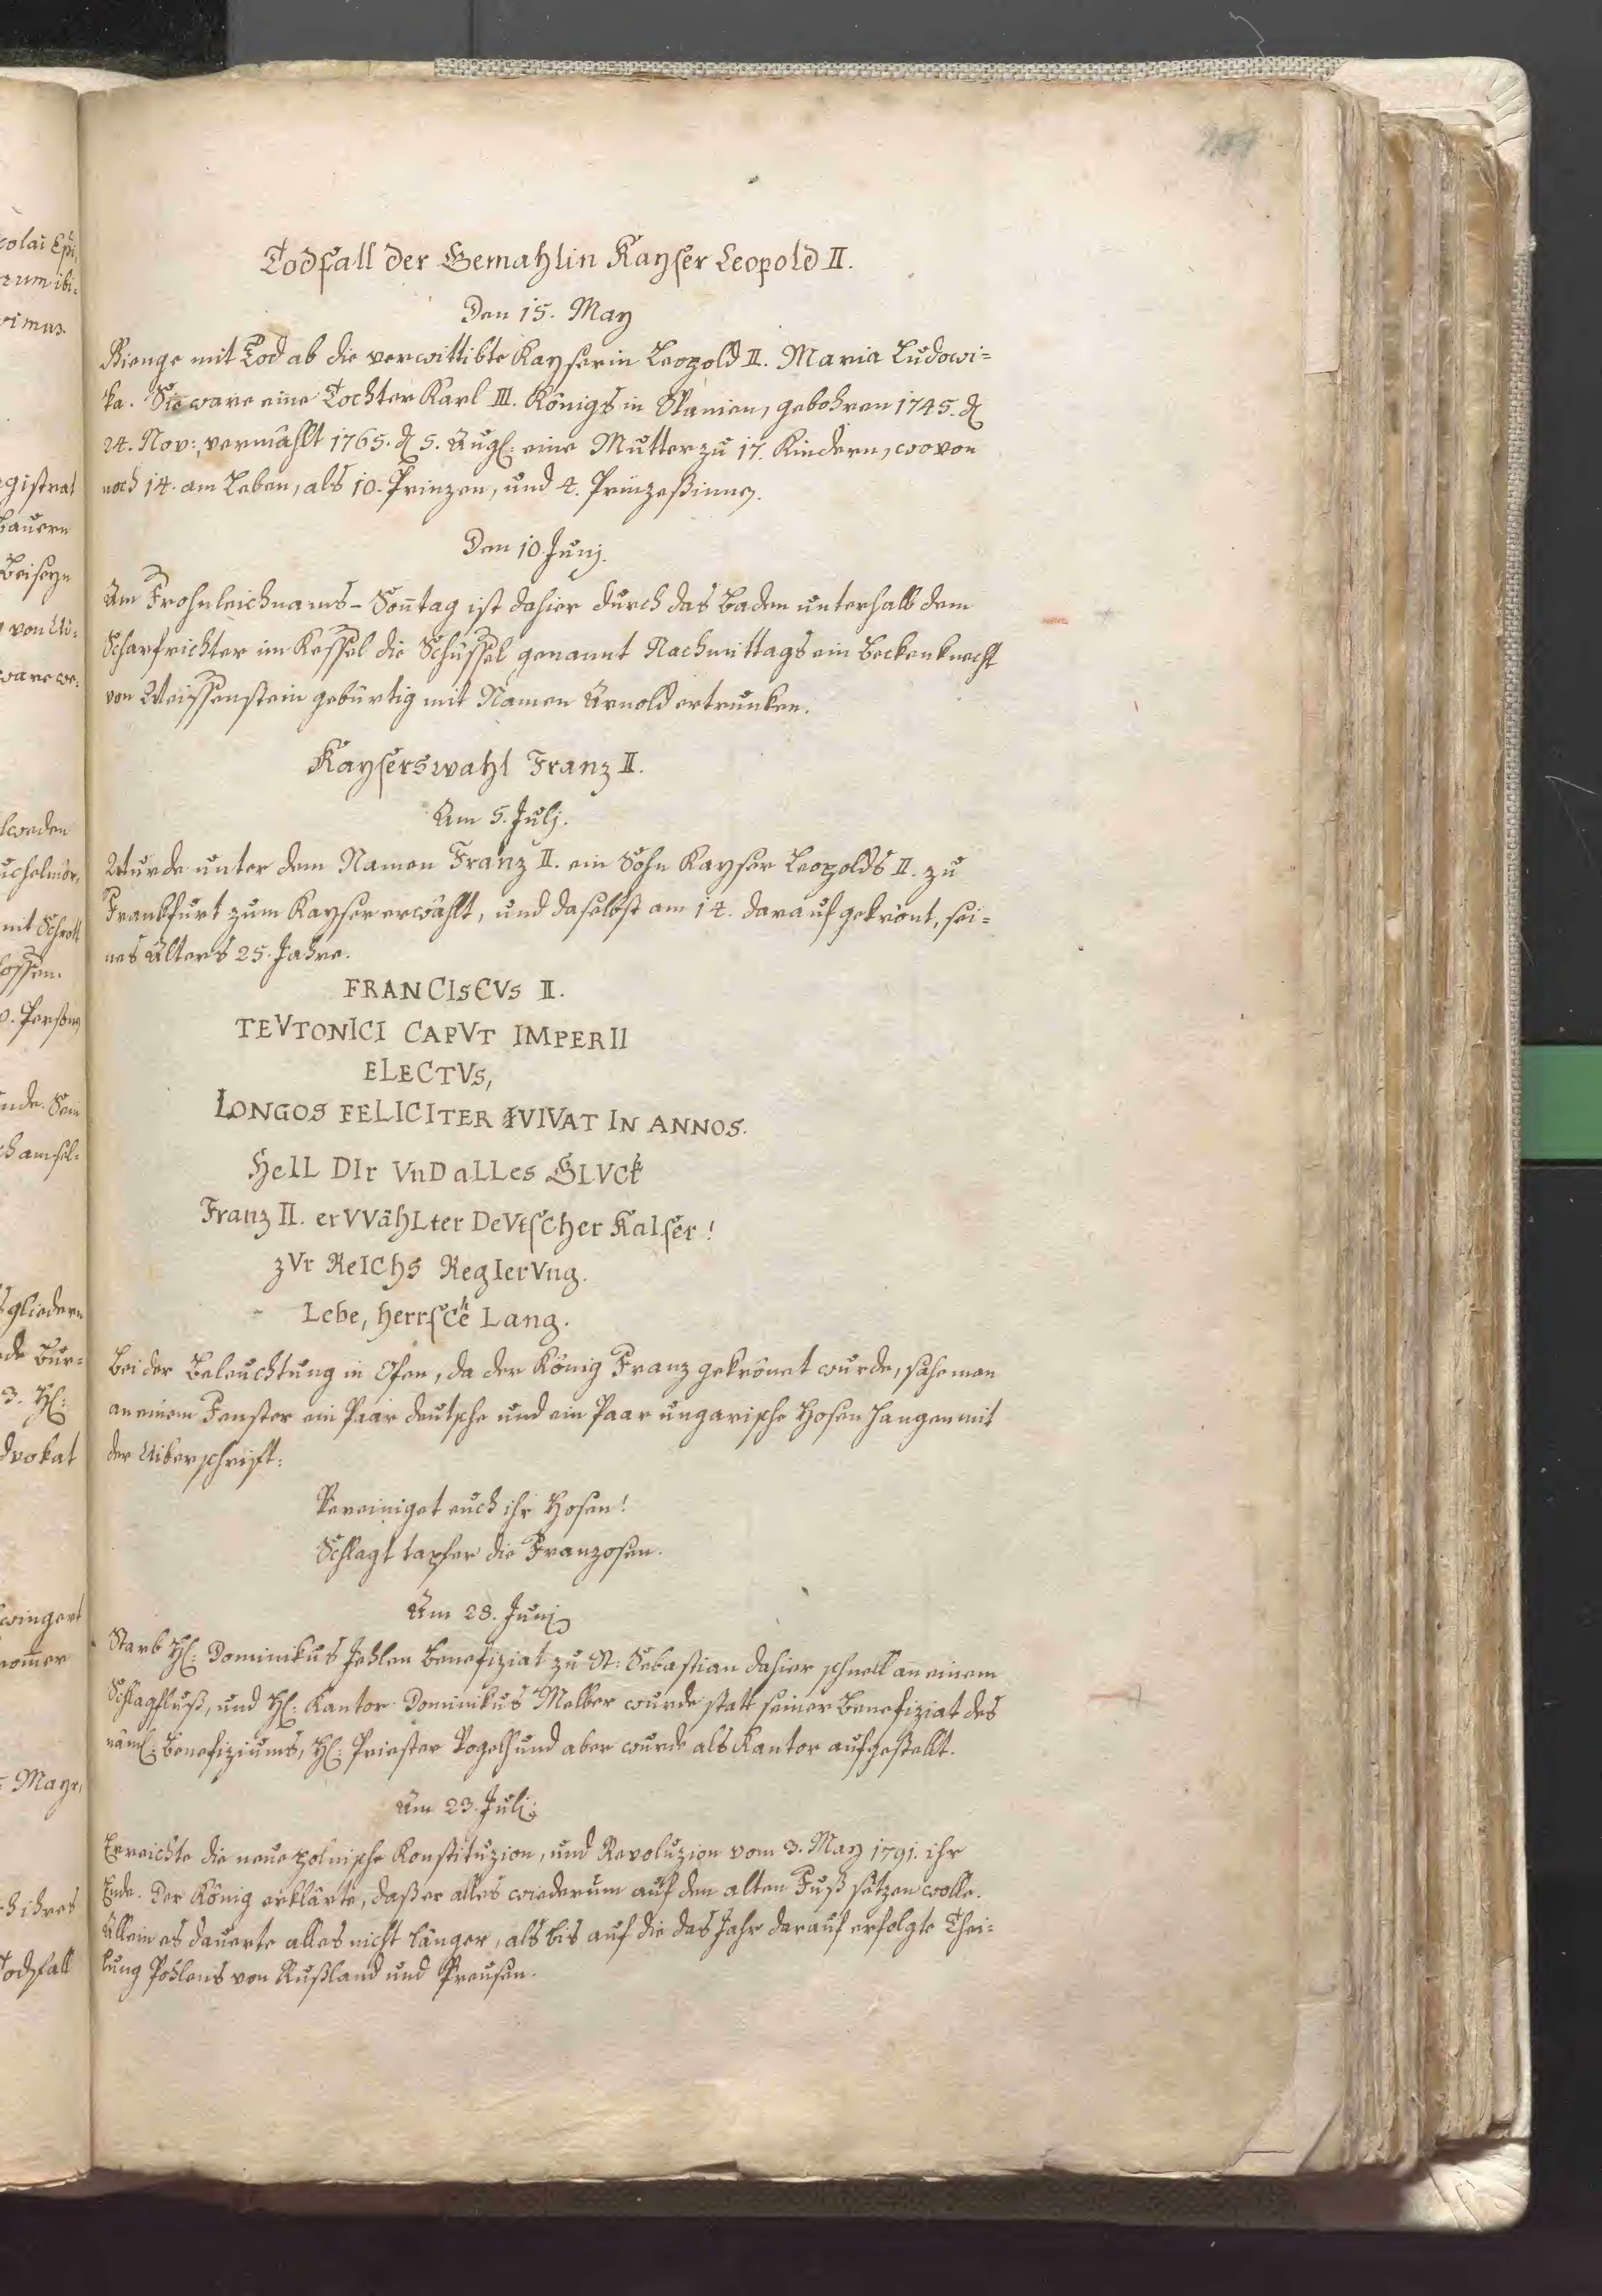 colai Epi,
rum ibi-
rimus.
gistrat
Bauern
Beiseyn
von Ui-
ware we-
uchelmör,
mit Schrott
ossen.
nde. Sein
sgliedern
de Bur-
3. H:
dvokat
wingert
nomer
Mayr,
h ihres
Todfall
Todfall der Gemahlin Kayser Leopold II.
Den 15. May
Gienge mit Tod ab die verwittibte Kayserin Leopold II. Maria Ludowi=
ka. Sie ware eine Tochter Karl III. Königs in Spanien, gebohren 1745. d
24. Nov:, vermählt 1765. d 5. Aug: eine Mutter zu 17. Kindern, wovon
noch 14. am Leben, als 10. Prinzen, und 4. Prinzeßinnen.
Den 10. Junj.
Am Frohnleichnams-Soñtag ist dahier durch das Baden unterhalb dem
Scharfrichter im Kessel die Schüssel genannt Nachmittags ein Beckenknecht
von Weissenstein gebürtig mit Namen Arnold ertrunken.
Kayserswahl Franz II.
Am 5. Julj.
Wurde unter dem Namen Franz II. ein Sohn Kayser Leopolds II. zu
Frankfurt zum Kayser erwählt, und daselbst am 14. darauf gekrönt, sei=
nes Alters 25. Jahre.
FRANCIsCVs II.
TEVTONICI CAPVT IMPERII
ELECTVs,
LONGOS FELICITER VIVAT IN ANNOS.
HeIL DIr VnD aLLes GLVCk
Franz II. erVVähLter DeVtsCher KaIser!
zVr ReICHs RegIerVng.
Lebe, herrsChe Lang.
Bei der Beleuchtung in Ofen, da der König Franz gekrönet wurde, sahe man
an einem Fenster ein Paar deutsche und ein Paar ungarische Hosen hangen mit
der Uiberschrift:
Vereiniget euch ihr Hosen!
Schlagt tapfer die Franzosen.
Am 28. Junj
Starb H: Dominikus Jehlen Benefiziat zu St: Sebastian dahier schnell an einem
Schlagfluß, und H: Kantor Dominikus Melber wurde statt seiner Benefiziat des
näml: Benefiziums, H: Priester Vogelhund aber wurde als Kantor aufgestellt.
Am 23. Julj:
Erreichte die neue polnische Konstituzion, und Revoluzion vom 3. May 1791. ihr
Ende. Der König erklärte, daß er alles wiederum auf den alten Fuß setzen wolle.
Allein es dauerte alles nicht länger, als bis auf die das Jahr darauf erfolgte Thei=
lung Pohlens von Rußland und Preusen.